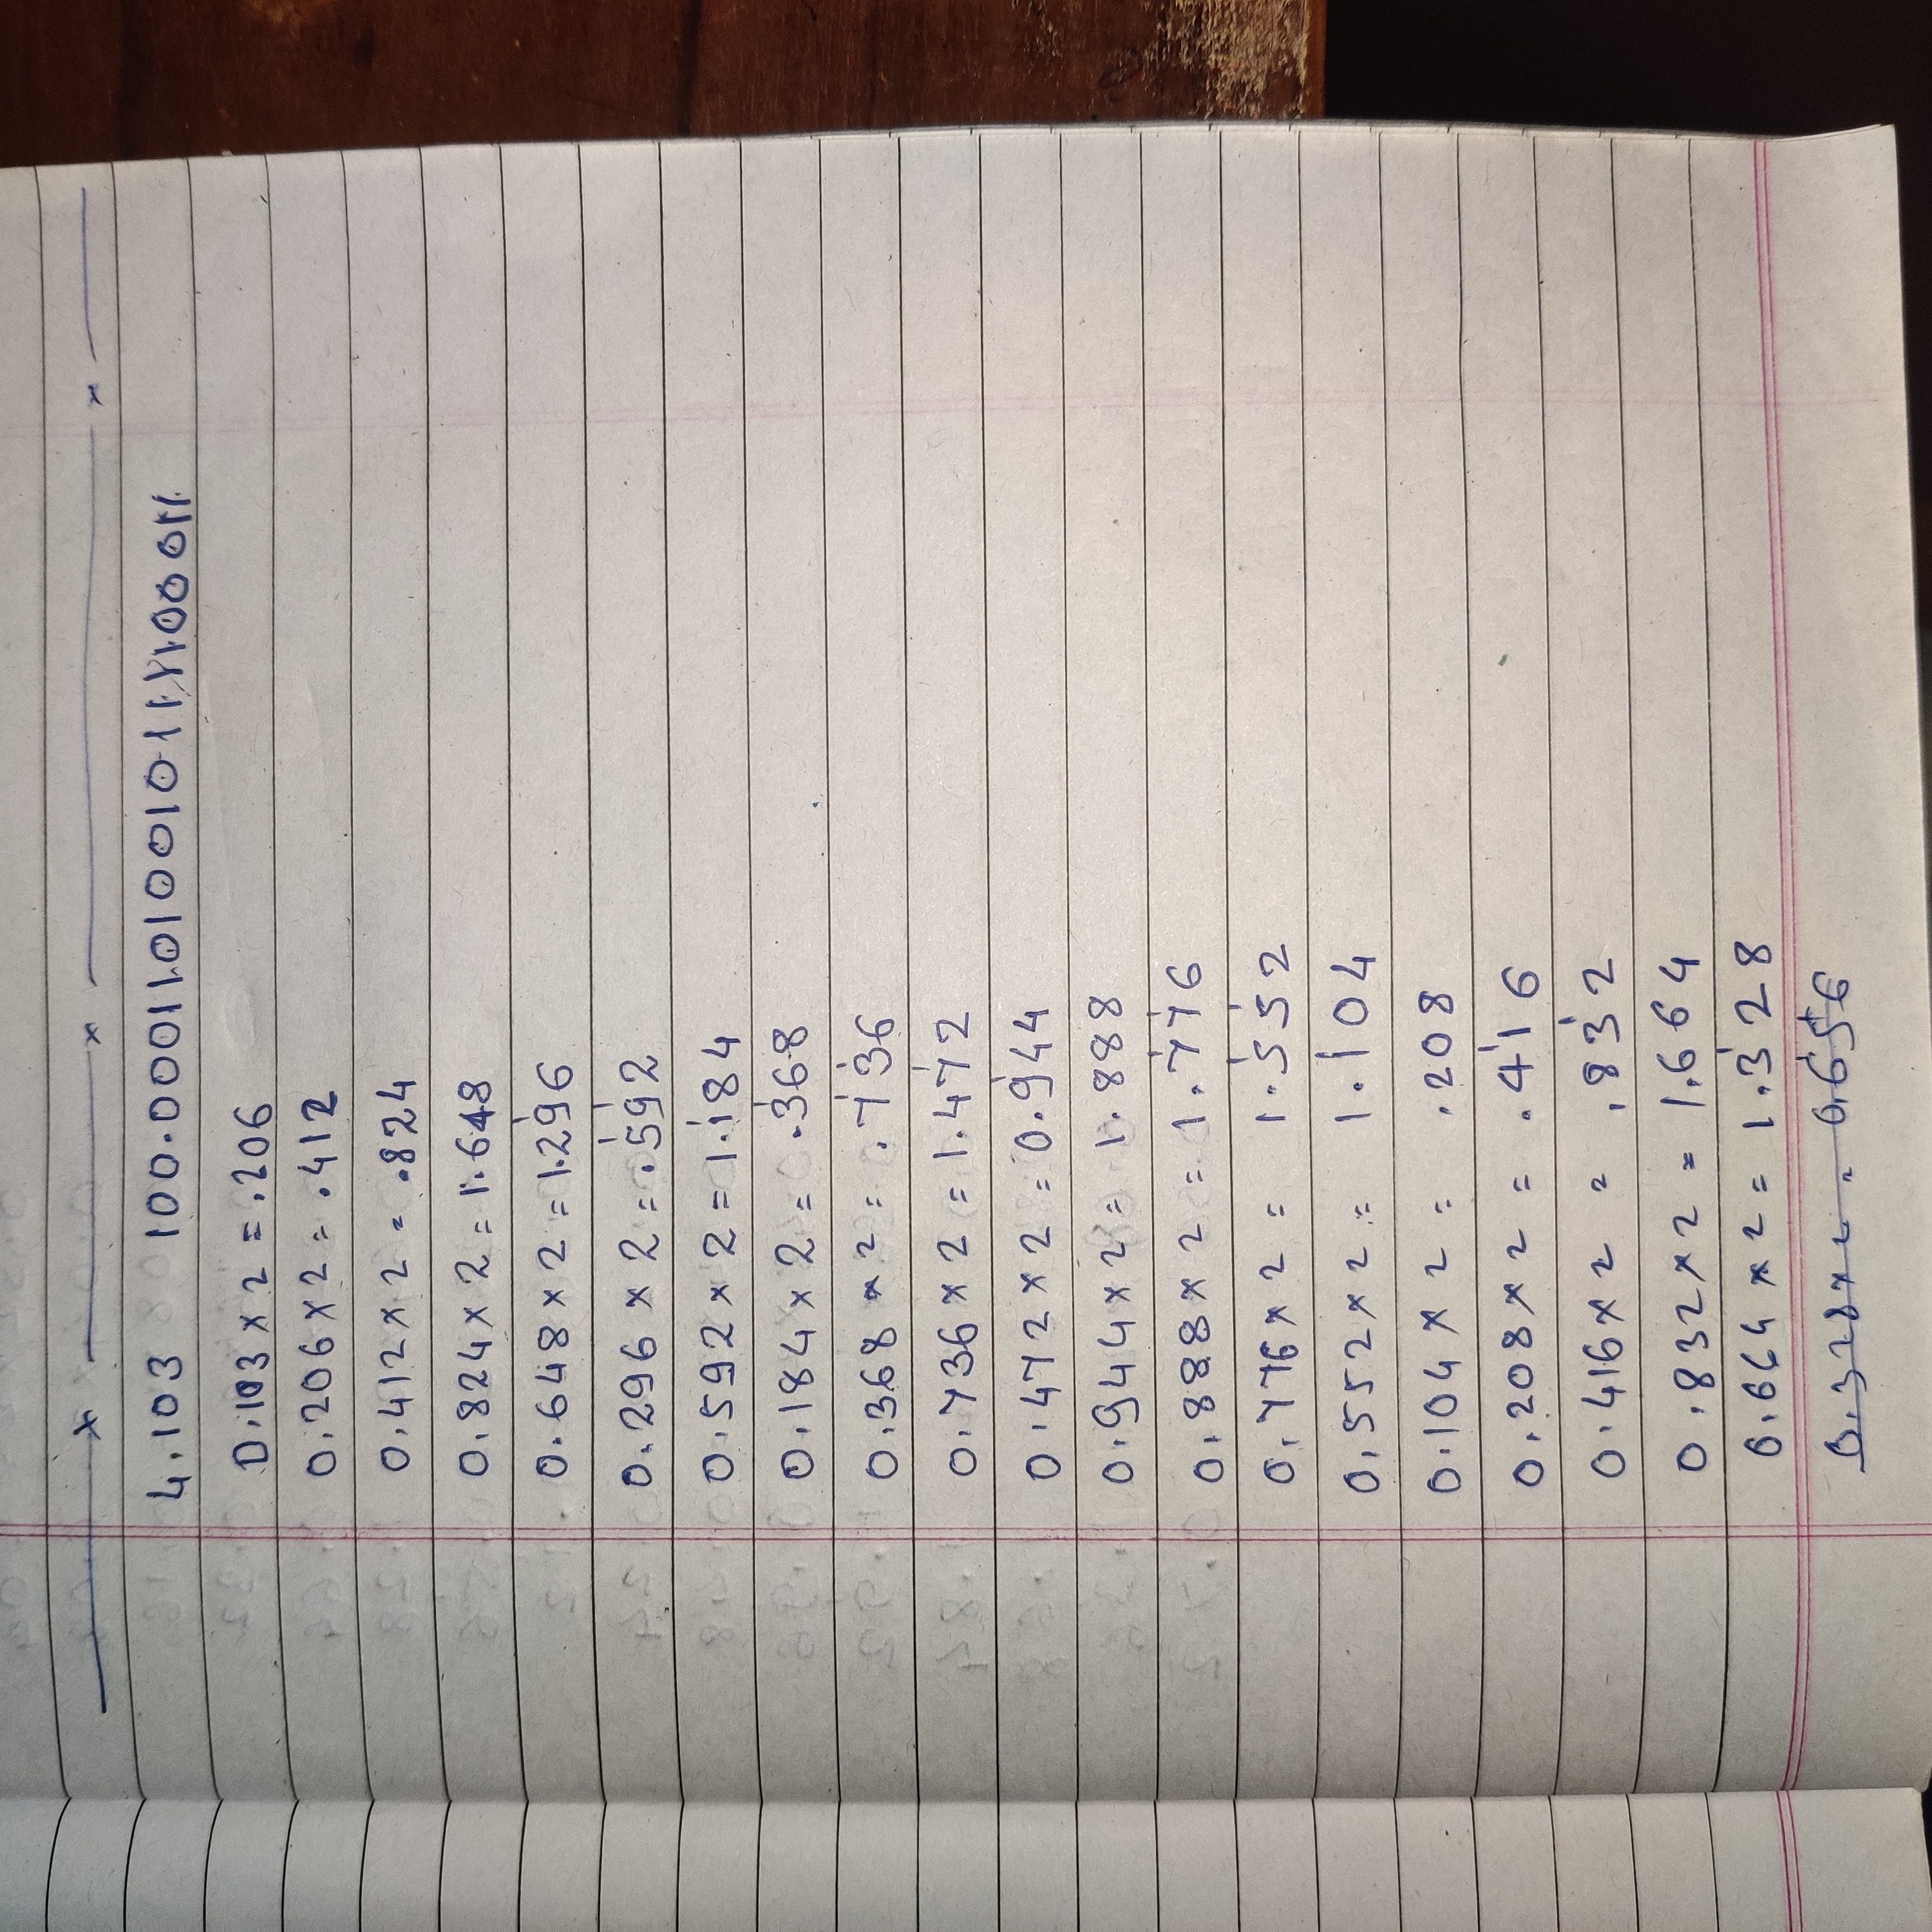 4.103 100.00011010010111100011
0.103 × 2 = .206
0.206 × 2 = .412
0.412 × 2 = .824
0.824 × 2 = 1.648
0.648 × 2 = 1.296
0.296 × 2 = .592
0.592 × 2 = 1.184
0.184 × 2 = .368
0.368 × 2 = .736
0.736 × 2 = 1.472
0.472 × 2 = 0.944
0.944 × 2 = 1.888
0.888 × 2 = 1.776
0.776 × 2 = 1.552
0.552 × 2 = 1.104
0.104 × 2 = .208
0.208 × 2 = .416
0.416 × 2 = .832
0.832 × 2 = 1.664
0.664 × 2 = 1.328
0.328 × 2 = 0.656